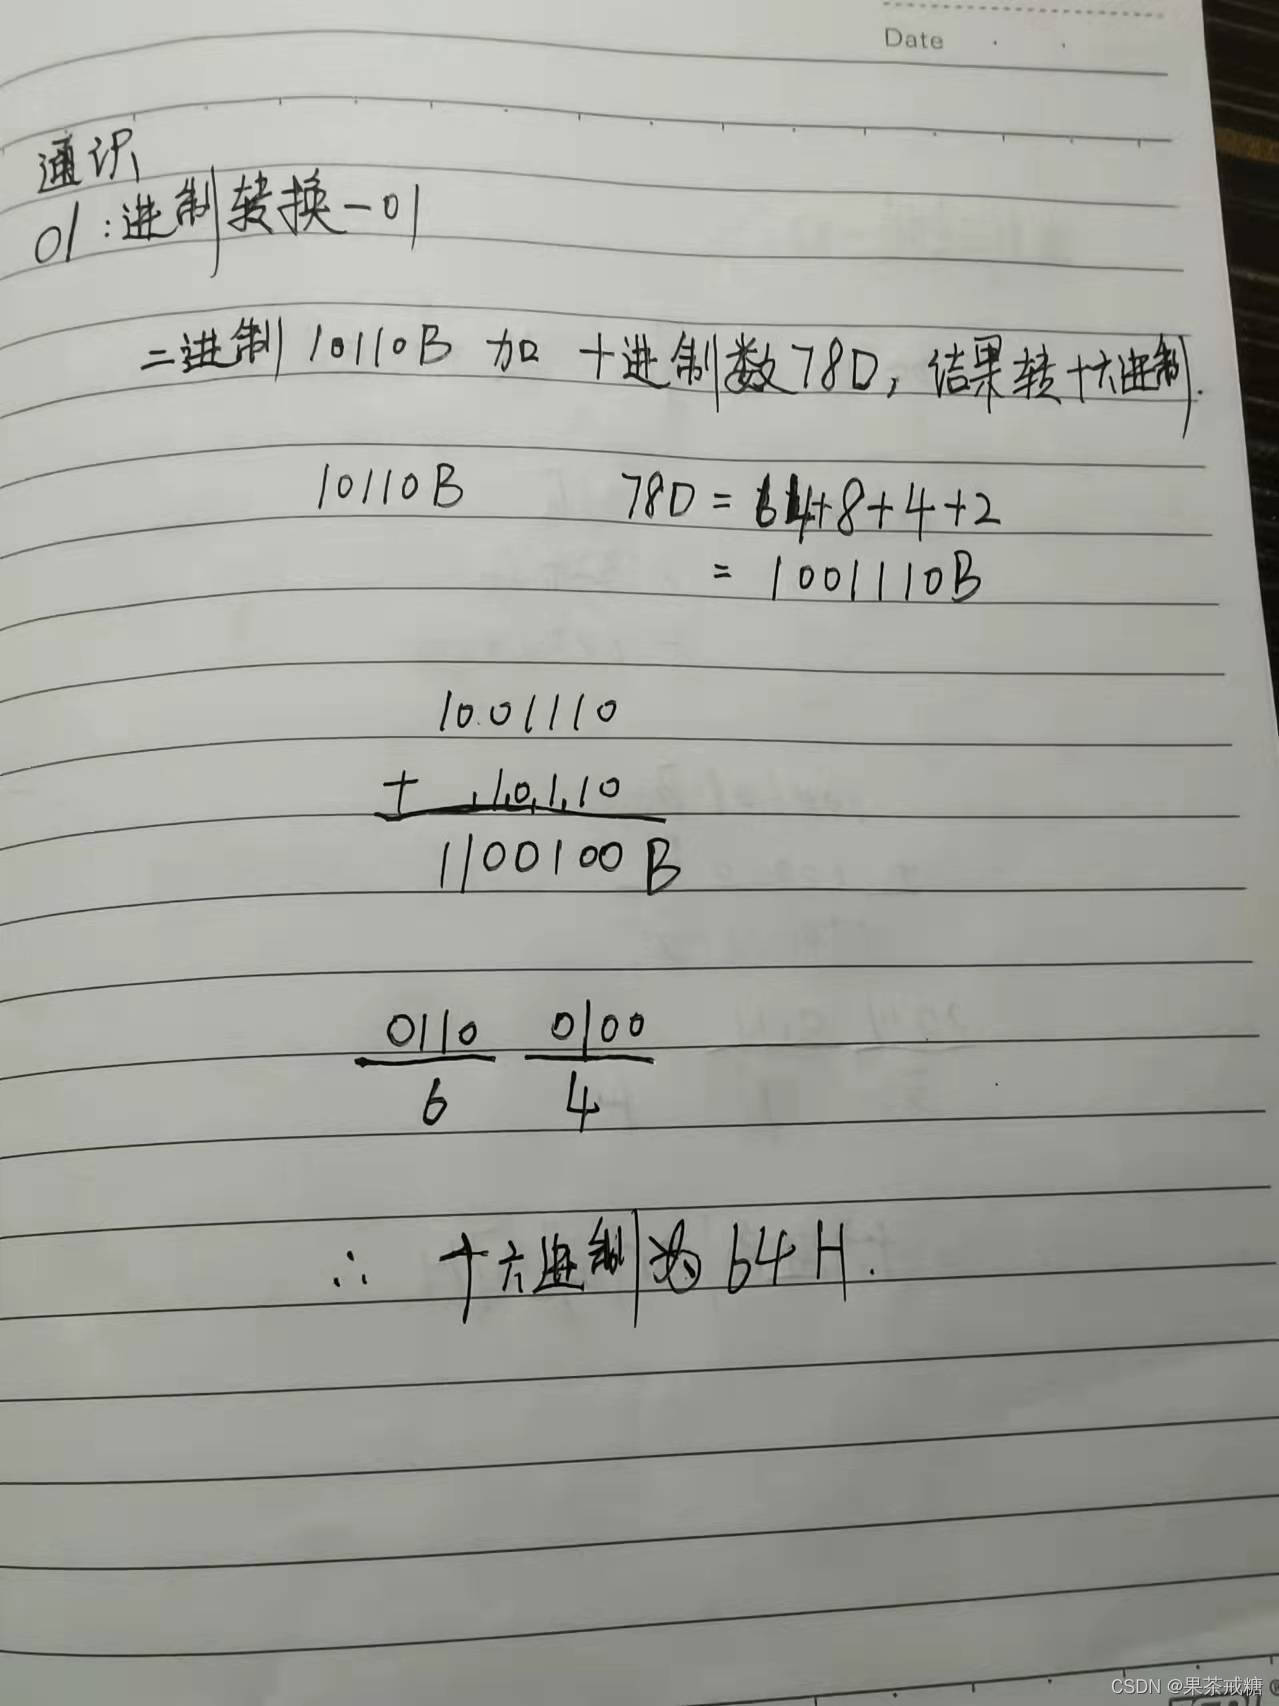 Date
通识
01:进制转换-01
二进制10110B 加 十进制数78D,结果转十六进制.
10110B 78D = 64+8+4+2
= 1001110B
1001110
+ 10110
1100100B
0110 0100
6 4
∴ 十六进制为64H.
CSDN @果茶戒糖